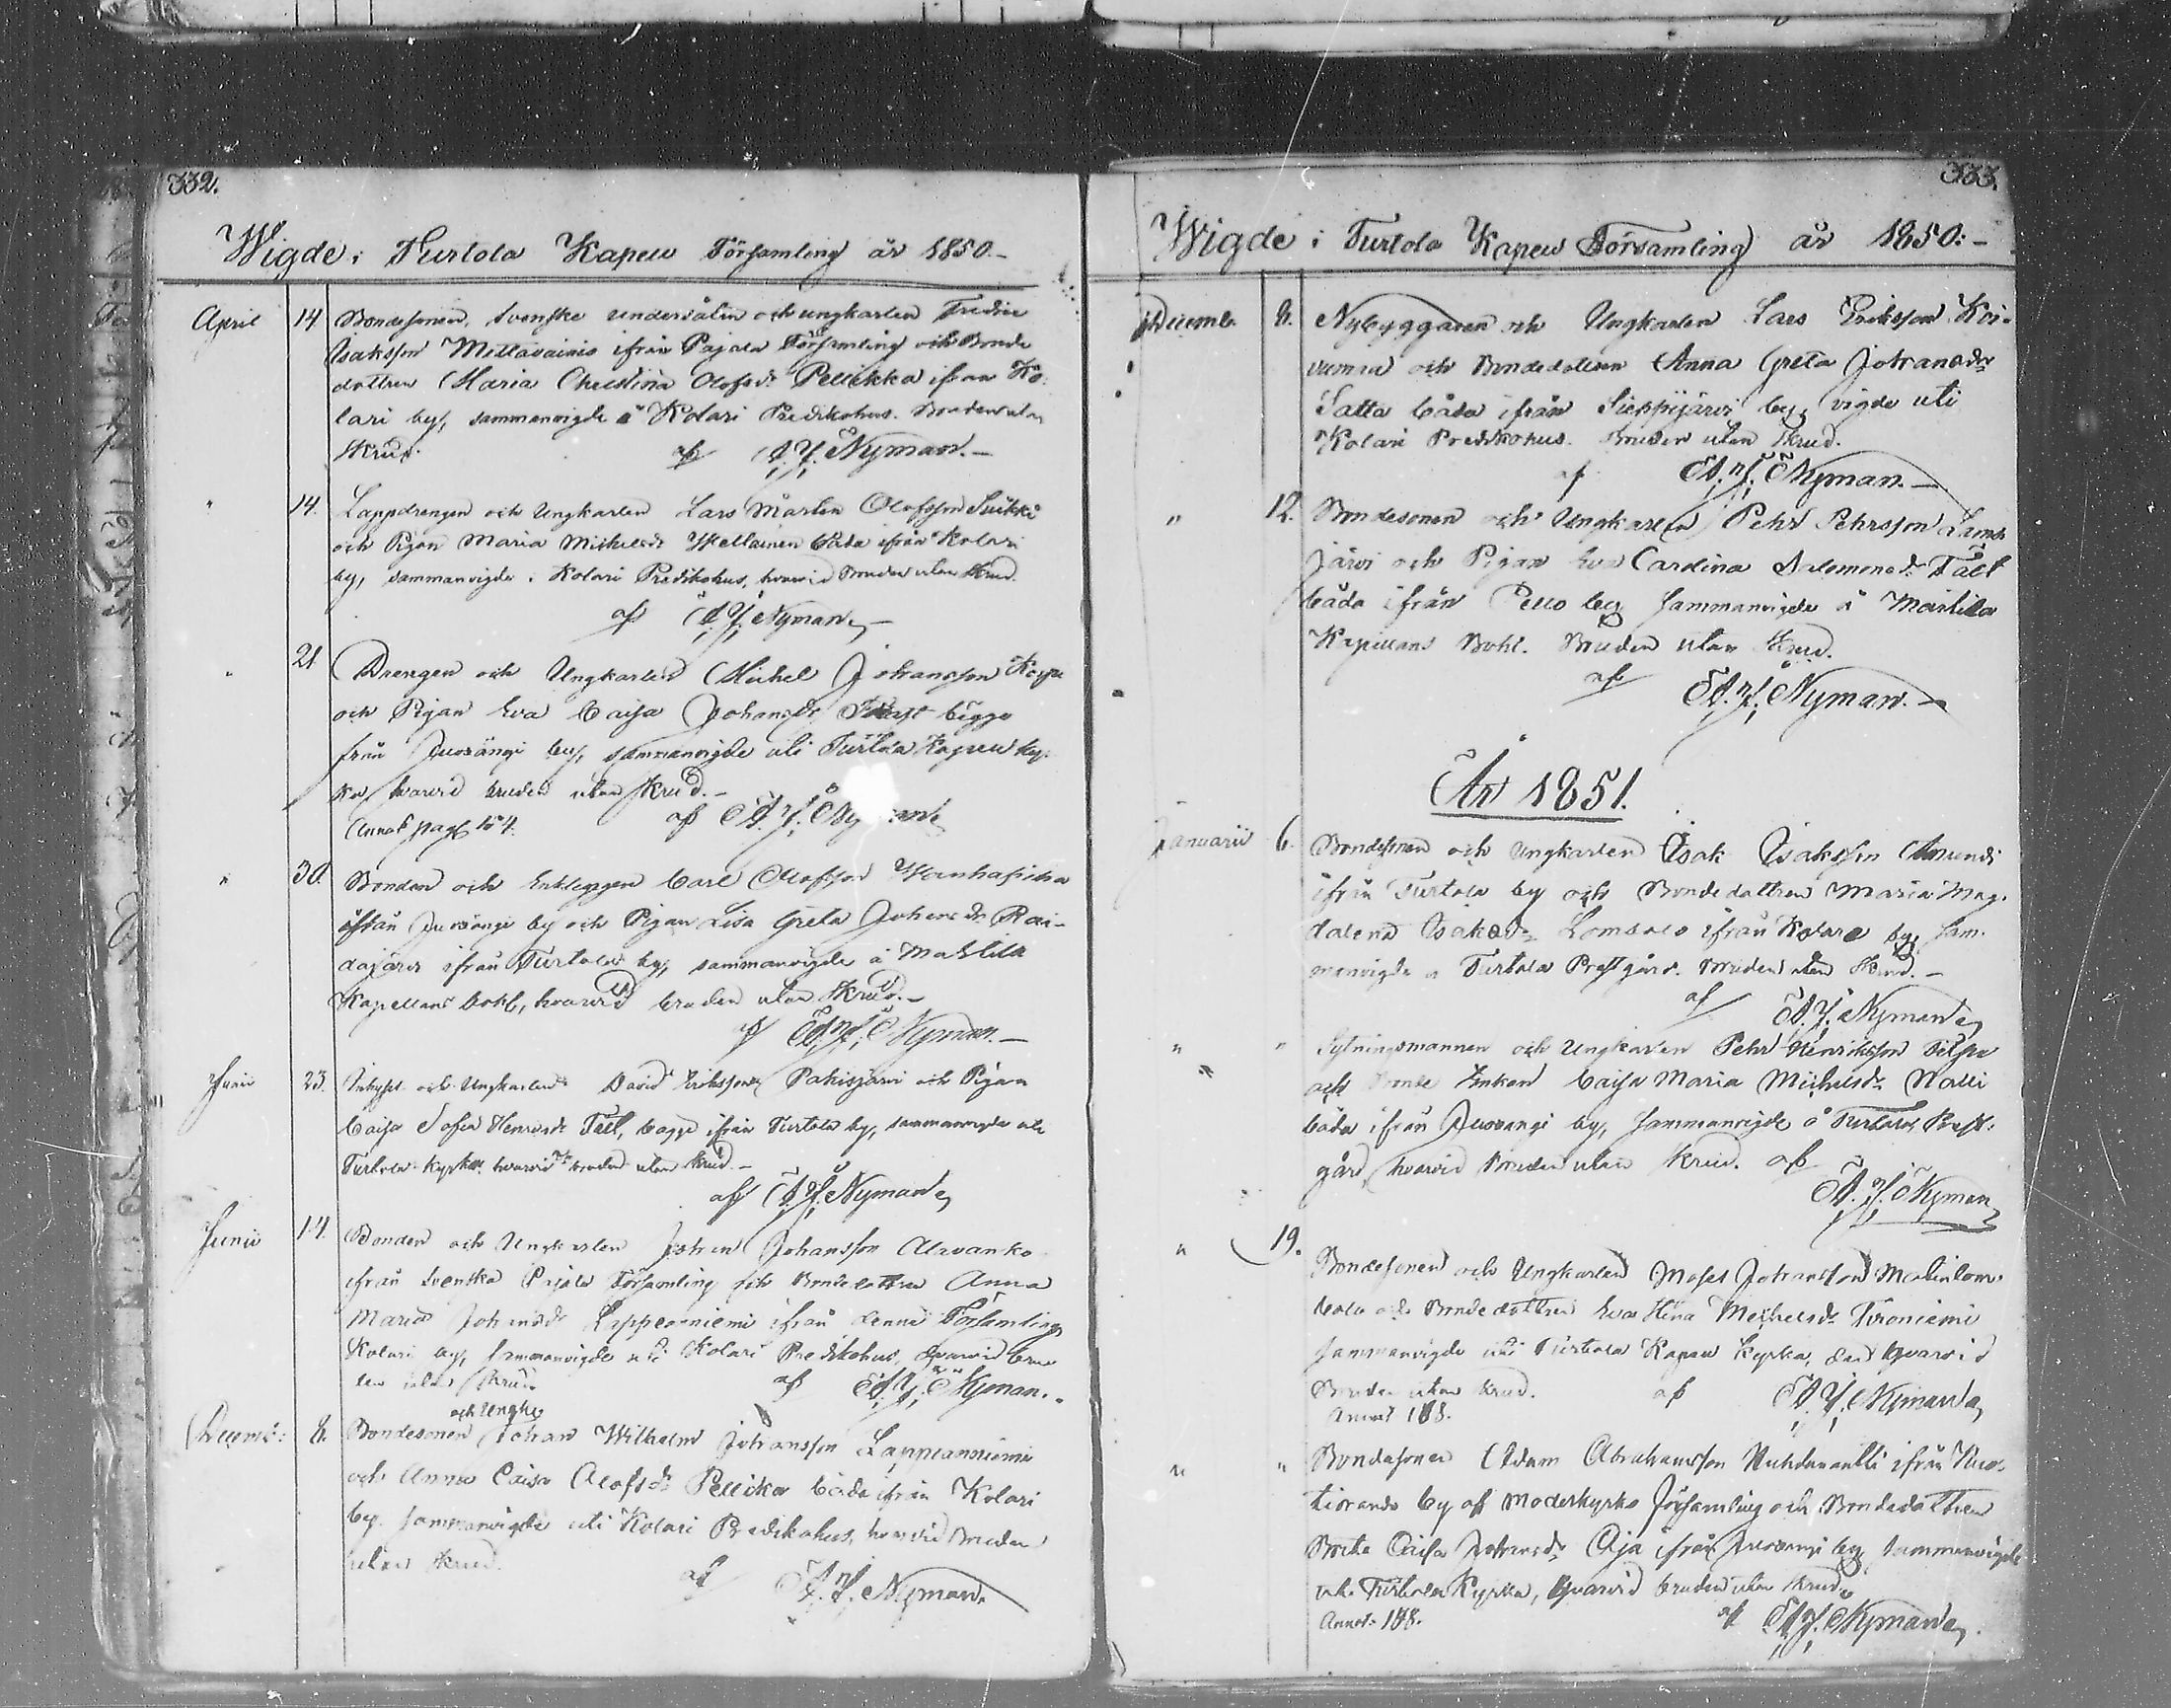 332.
Wigde i Turtola Kapell Församling år 1850.-
April 14 Bondesonen, Svenske undersåten och ungkarlen Fredric
Isaksson Mettävainio ifrån Pajala Församling och Bonde
dottren Maria Christina Olofsdr Pellikka ifrån Ko-
lari by, sammanvigde å Kolari Predikohus. Bruden utan
skrud. af A. J. Nyman.-
" 14. Lappdrengen och Ungkarlen Lars Mårten Olofsson Suikki
och Pigan Maria Michelsdr båda ifrån Kolari
by, sammanvigde i Kolari Predikohus, hvarvid Bruden utan skrud.
af A. J. Nyman
" 21 Drengen och Ungkarlen Michel Johansson
och Pigan Eva Caisa Johansdr bägge
från Juoxängi by, sammanvigde uti Turtola Kapell kyr-
ka, hvarvid bruden utan skrud.-
Annot pag 154. af A. J. Nyman
" 30. Bonden och Enklingen Carl Olofsson Wanhapiha
ifrån Juoxängi by och Pigan Lisa Greta Johansdr Rai-
dajärvi ifrån Turtola by, sammanvigde å Marttila
Kapellans bohl, hvarvid bruden utan skrud.-
af A. J. Nyman.-
Junii 23. Inhyses och Ungkarlen David Eriksson Pakisjärvi och Pigan
Caisa Sofia Henricsdr Fält, bägge ifrån Turtola by, sammanvigde uti
Turtola kyrka, hvarvid bruden utan skrud.-
af A. J. Nyman
Junii 14. Bonden och Ungkarlen Johan Johansson Alavanko
ifrån Svenska Pajala Församling och Bondedottren Anna
Maria Johansdr Lappeaniemi ifrån denna Församlings
Kolari by, sammanvigde uti Kolari Predikohus, hvarvid bru-
den utan skrud. af A. J. Nyman.
och Ungk:
Decemb: 8. Bondesonen Johan Wilhelm Johansson Lappeanniemi
och Anna Caisa Olofsdr Pellikka båda ifrån Kolari
by. sammanvigde uti Kolari Predikohus, hvarvid Bruden
utan skrud. af A. J. Nyman.
333.
Wigde i Turtola Kapell Församling år 1850.-
Decemb. 8. Nybyggaren och Ungkarlen Lars Eriksson Koi-
vumaa och Bondedottren Anna Greta Johansdr
Satta båda ifrån Sieppijärvi by, vigde uti
Kolari Predikohus. Bruden utan skrud.
af A. J. Nyman.-
" 12. Bondesonen och Ungkarlen Pehr Pehrsson Lamb-
järvi och Pigan Eva Carolina Salomonsdr Fält
båda ifrån Pello by sammanvigde å Marttila
Kapellans Bohl. Bruden utan skrud.
af A. J. Nyman.-
År 1851.
Januarii 6. Bondesonen och Ungkarlen Isak Isaksson Amundi
ifrån Turtola by och Bondedottren Maria Mag-
dalena Isaksdr Lomsalo ifrån Kolari by, sam-
manvigde å Turtola Prestgård. Bruden utan skrud.-
af A. J. Nyman
" " Sytningsmannen och Ungkarlen Pehr Henriksson
och Bonde Enkan Caisa Maria Michelsdr Nalli
båda ifrån Juoxangi by, sammanvigde å Turtola Prest-
gård, hvarvid Bruden utan skrud. af
A. J. Nyman
" 19. Bondesonen och Ungkarlen Moses Johansson
och Bondedottren Eva Stina Michelsdr Turoniemi
sammanvigde uti Turtola Kapell kyrka, hvarvid
Bruden utan skrud. af A. J. Nyman
Annot 188.
" " Bondesonen Adam Abrahamsson ifrån Kui-
tioranda by af Moderkyrko Församling och Bondedottren
Brita Caisa Johansdr Äijä ifrån Juoxangi by sammanvigde
uti Turtola Kyrka, hvarvid bruden utan skrud.
Annot: 188. af A. J. Nyman